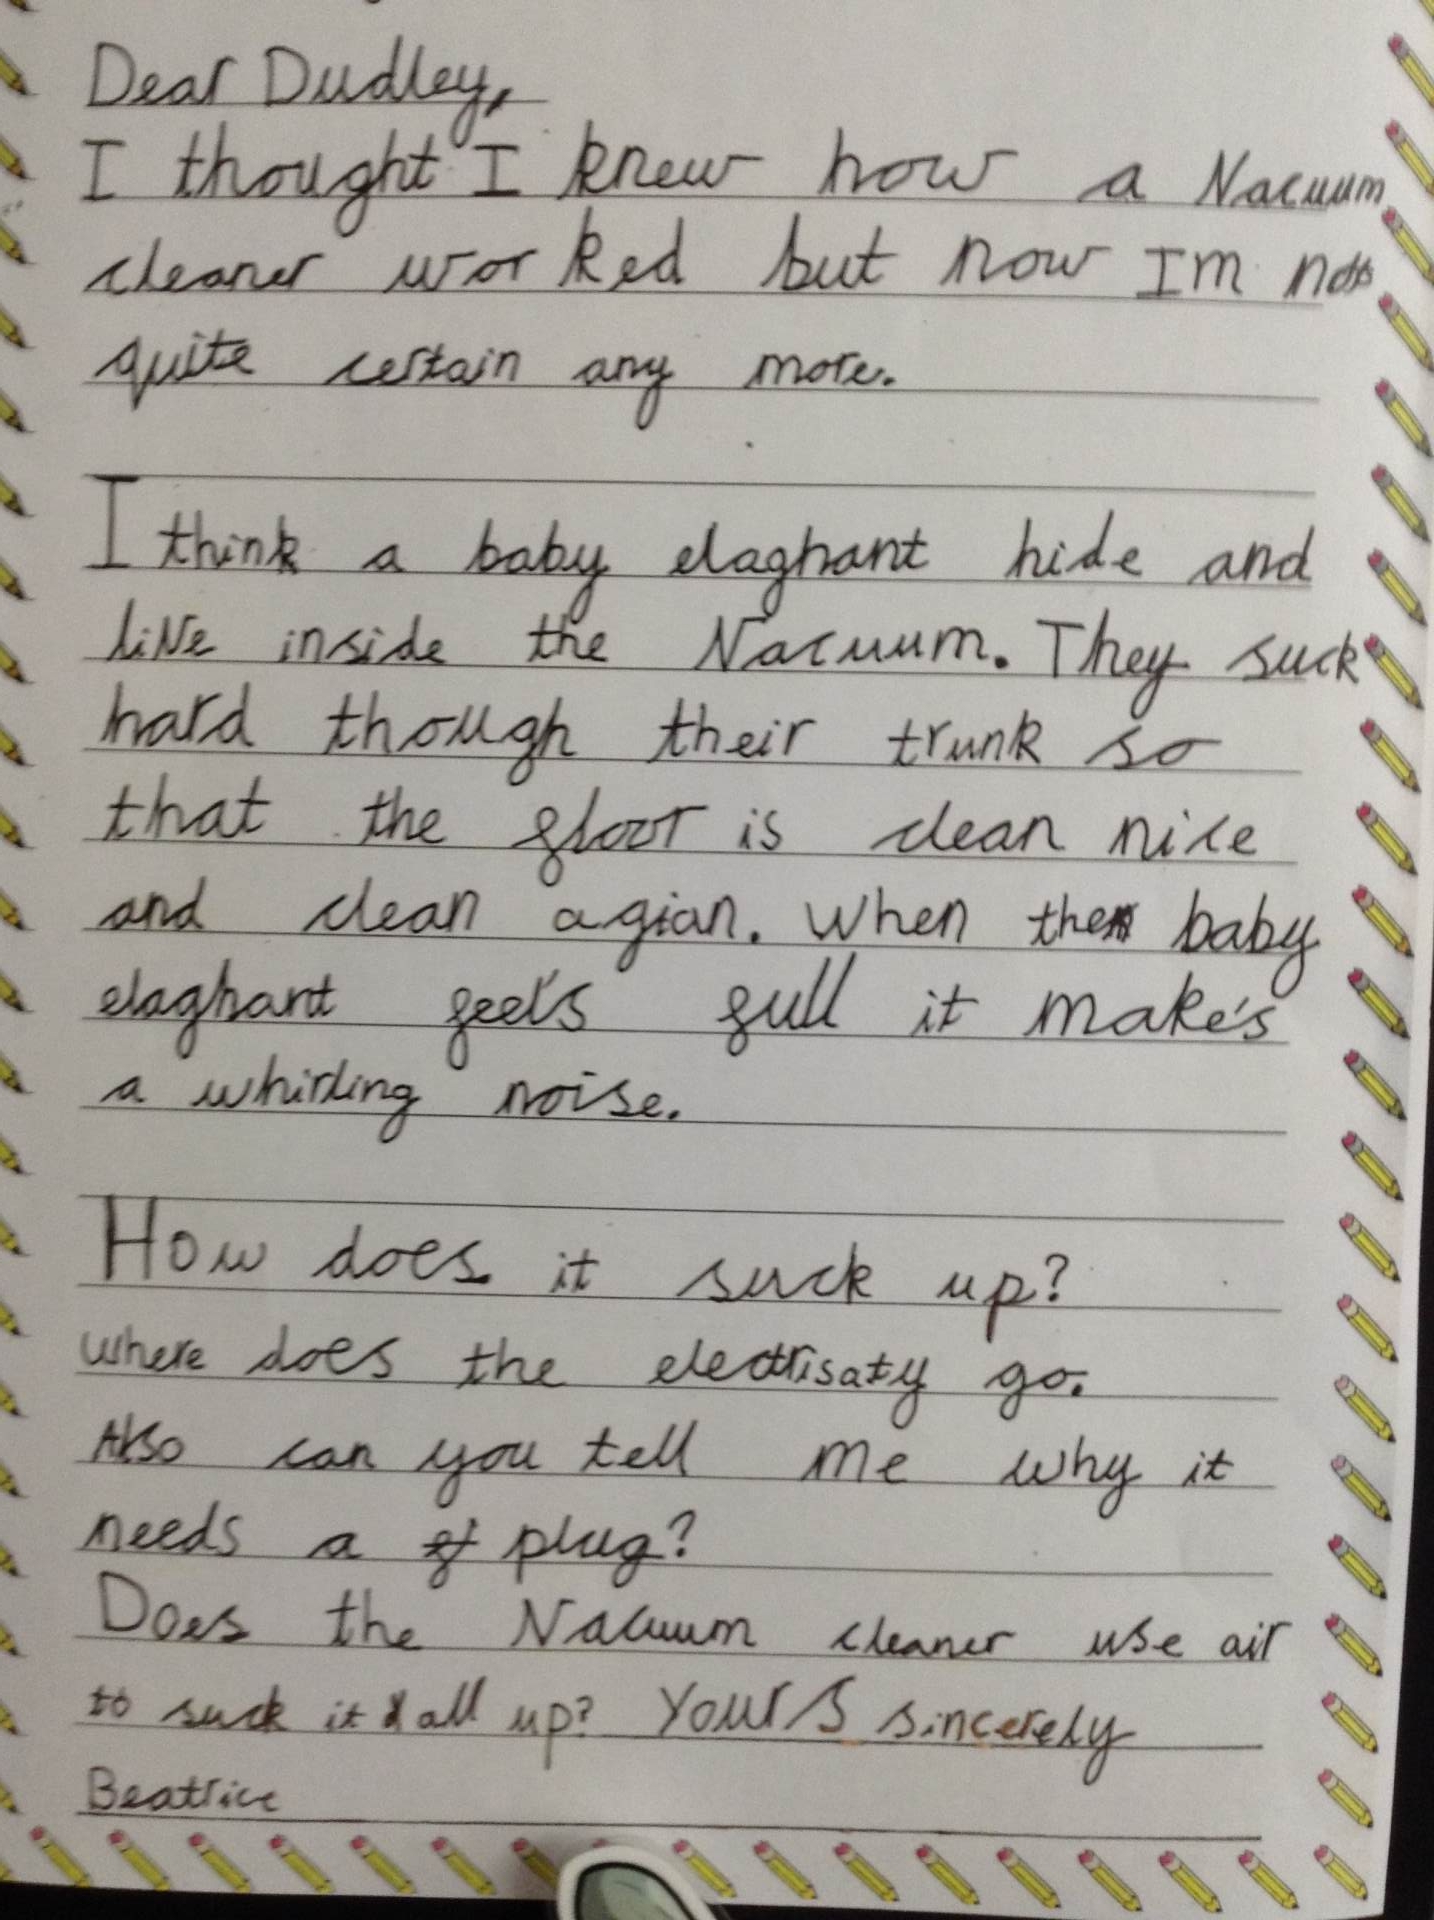 Dear Dudley,
I thought I knew how a Vacuum
cleaner worked but now Im not
quite certain any more.
I think a baby elaphant hide and
live inside the Vacuum. They suck
hard though their trunk so
that the floor is clean nice
and clean agian. When the baby
elaphant feel's full it make's
a whirling noise.
How does it suck up?
where does the electrisaty go.
Also can you tell me why it
needs a plug?
Does the Vacuum cleaner use air
to suck it all up? Yours sincerely
Beatrice